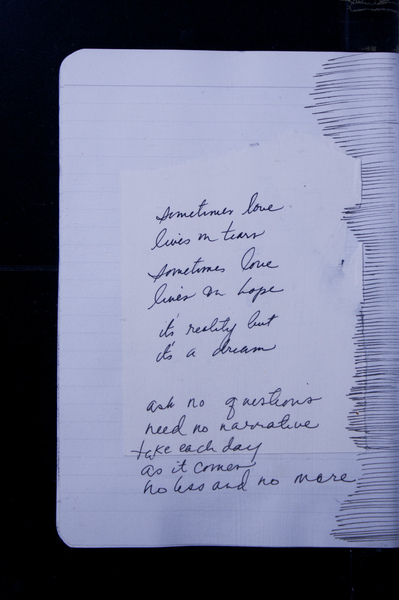 sometimes love
lives in tears
sometimes love
lives in hope
it's reality but
it's a dream
ask no questions
need no narrative
take each day
as it comes
no less and no more